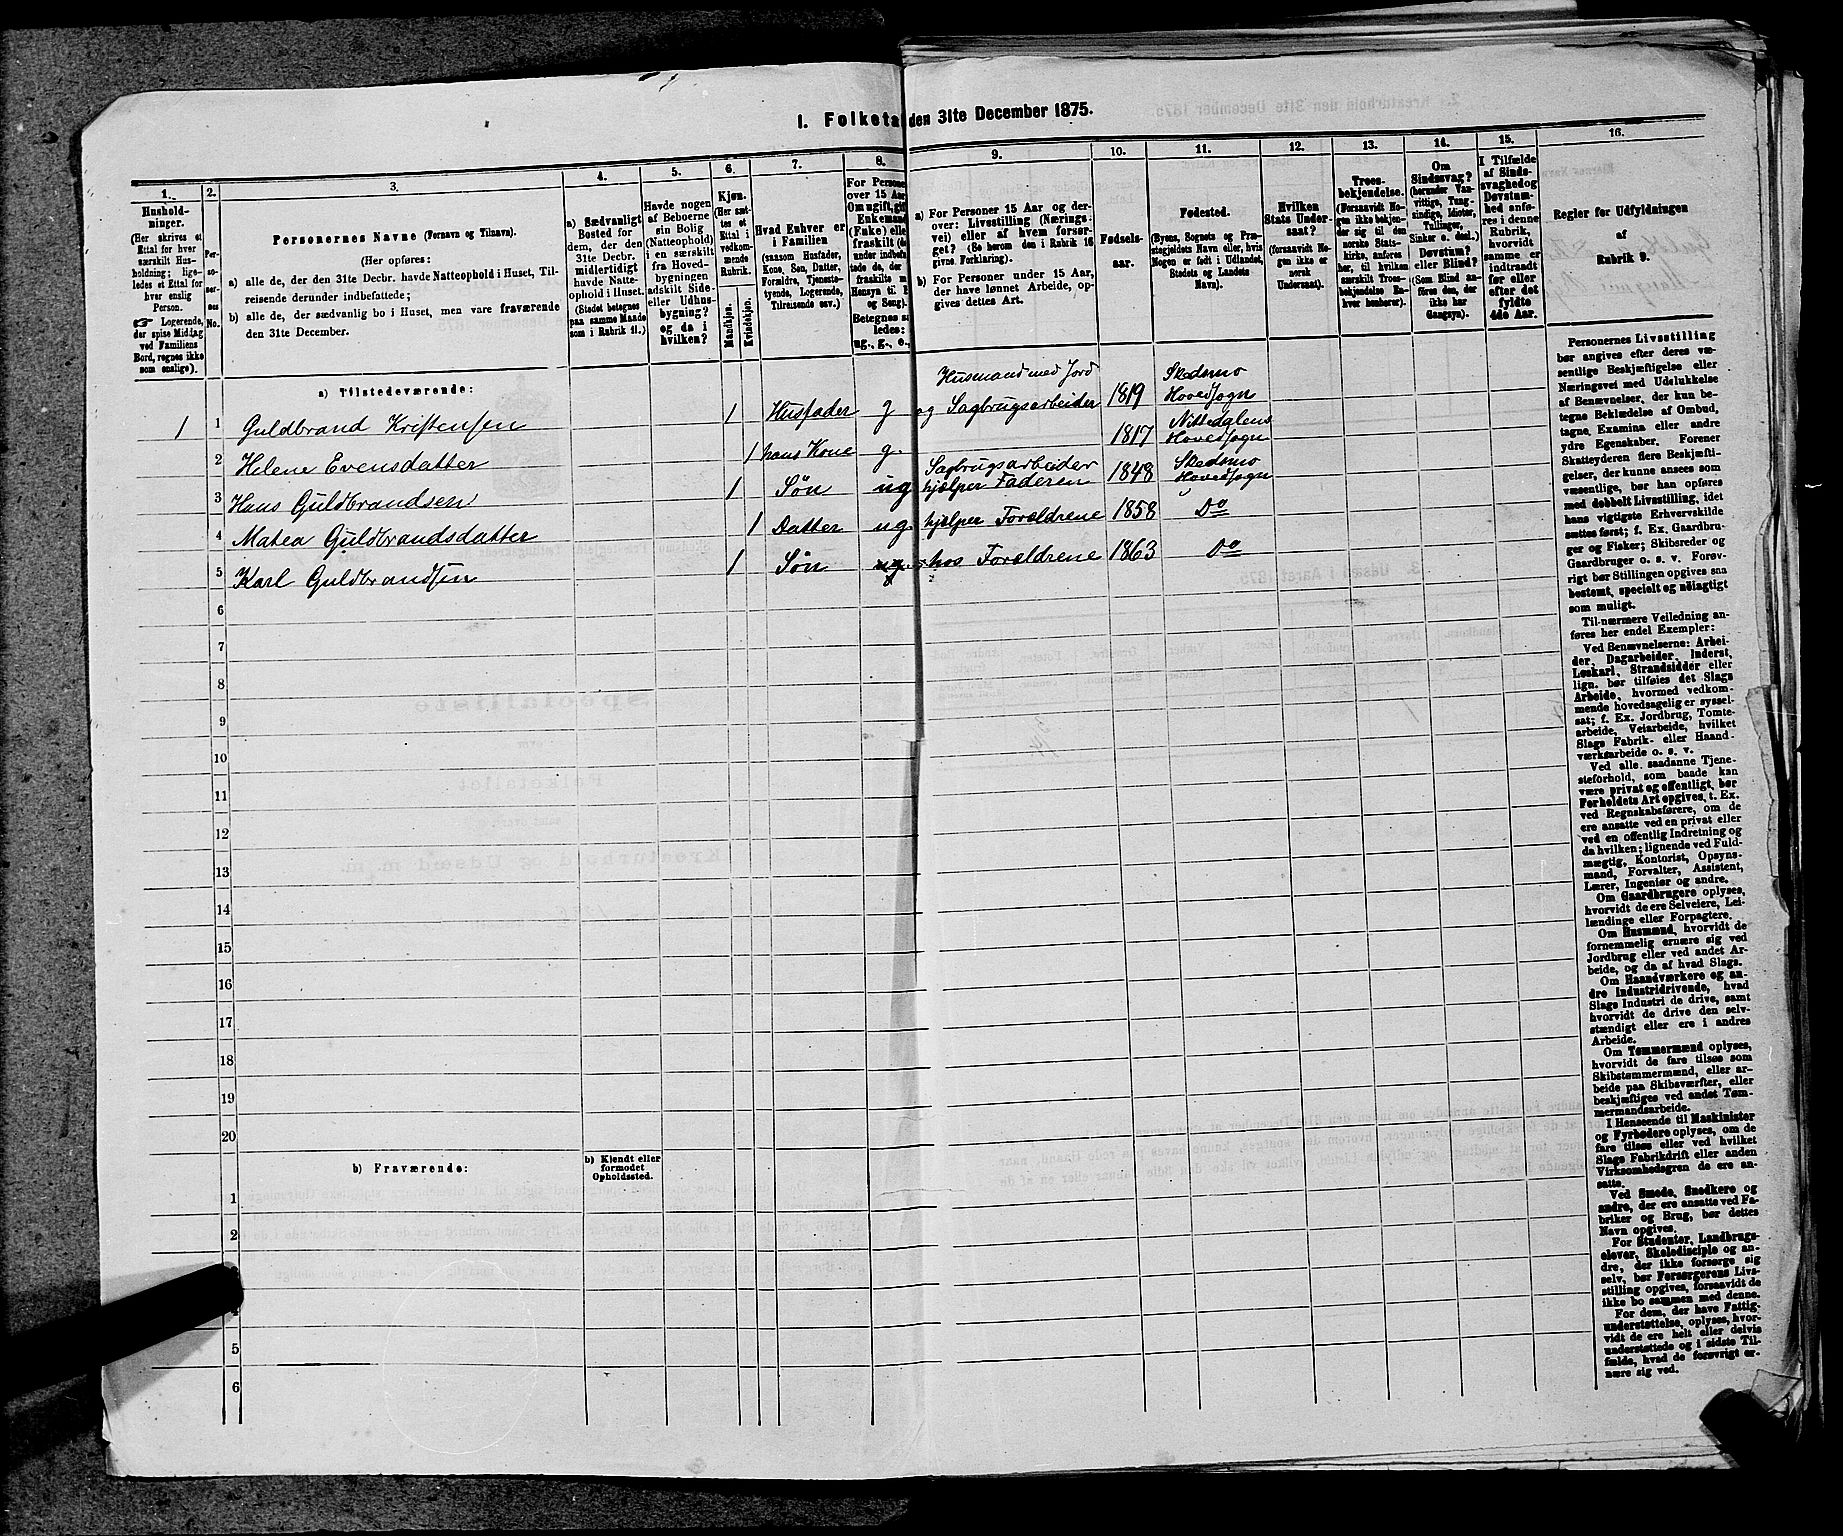 I. Folketal den 31te December 1875.
1.
2.
3.
4.
5.
6.
7.
8.
9.
10.
11.
12.
13.
14.
15.
16.
Hushold-
ninger.
(Her skrives et
Ettal for hver
særskilt Hus-
holdning; lige-
ledes et Ettal for
hver enslig
Person.
☞ Logerende,
der spise Middag
ved Familiens
Bord, regnes ikke
som enslige).
Per-
so-
ner-
nes
No.
Personernes Navne (Fornavn og Tilnavn).
(Her opføres:
a) alle de, der den 31te Decbr. havde Natteophold i Huset, Til-
reisende derunder indbefattede;
b) alle de, der sædvanlig bo i Huset, men vare fraværende
den 31te December.
a) Sædvanligt
Bosted for
dem, der den
31te Decbr.
midlertidigt
havde Natte-
ophold i Huset.
(Stedet betegnes
paa samme Maade
som i Rubrik 11.)
Havde nogen
af Beboerne
sin Bolig
(Natteophold)
i en særskilt
fra Hoved-
bygningen
adskilt Side-
eller Udhus-
bygning?
og da i
hvilken?
Kjøn.
(Her sæt-
tes et
Ettal i
vedkom-
mende
Rubrik.
Mandkjøn.
Kvindekjøn.
Hvad Enhver er
i Familien
(saasom Husfader,
Kone, Søn, Datter,
Forældre, Tjeneste-
tyende, Logerende,
Tilreisende osv.)
For Persone
over 15 Aar
Om ugift, gift
Enkemand
(Enke) eller
fraskilt (de
under indbefat-
tede de, der
fraskilte m
Hensyn til B
og Seng).
Betegnes saa-
ledes:
ug., g., e.,
a) For Personer 15 Aar og der-
over: Livsstilling (Nærings-
vei) eller af hvem forsør-
get? (Se herom den i Rubrik 16
givne Forklaring).
b) For Personer under 15 Aar,
der have lønnet Arbeide, op-
gives dettes Art.
Fødsels-
aar.
Fødested.
(Byens, Sognets og Præ-
stegjeldets Navn eller, hvis
Nogen er født i Udlandet,
Stedets og Landets
Navn).
Hvilken
Stats Under-
saat?
(forsaavidt No-
gen ikke er
norsk
Undersaat).
Troes-
bekjendelse.
(Forsaavidt No-
gen ikke bekjen-
der sig til den
norske Stats-
kirke, anføres
her, til hvilken
særskilt Troes-
bekjendelse En-
hver henhører).
Om
Sindssvag?
(herunder Van-
vittige, Tung-
sindige, Idioter,
Tullinger,
Sinker o. desl.)
Døvstum?
eller Blind?
(Som Blind an-
føres den, der
ikke har
Gangsyn).
I Tilfælde
af Sinds-
svaghed og
Døvstum-
hed anfø-
res i denne
Rubrik,
hvorvidt
samme er
indtraadt
før eller
efter det
fyldte
4de Aar.
Regler for Udfyldningen
af
Rubrik 9.
a) Tilstedeværende:
1 1 Guldbrand Kristensen 1 Husfader g Husmand med Jord
og Sagbrugsarbeider 1819 Skedsmo
Hovedsogn
2 Helene Evensdatter 1 hans Kone g. 1817 Nittedalens
Hovedsogn
3 Hans Guldbrandsen 1 Søn ug Sagbrugsarbeider
hjælper Faderen 1848 Skedsmo
Hovedsogn
4 Matea Guldbrandsdatter 1 Datter ug hjelper Forældrene 1858 Do
5 Karl Guldbrandsen 1 Søn ug hos Forældrene 1863 Do
6
7
8
9
10
11
12
13
14
15
16
17
18
19
20
b) Fraværende:
b) Kjendt eller
formodet
Opholdssted.
1
2
4
5
6
Personernes Livsstilling
bør angives efter deres væ-
sentlige Beskjæftigelse eller
Næringsvei med Udelukkelse
af Benævnelser, der kun be-
tegne Beklædelse af Ombud,
tagne Examina eller andre
ydre Egenskaber. Forener
Skatteyderen flere Beskjæfti-
gelser, der kunne ansees som
væsentlige, bør han opføres
med dobbelt Livsstilling, idet
hans vigtigste Erhvervskilde
sættes først; f. Ex. Gaardbru-
ger og Fisker; Skibsreder og
Gaardbruger o. s. v. Forøv-
rigt bør Stillingen opgives saa
bestemt, specielt og nøiagtigt
som muligt.
Til nærmere Veiledning an-
føres her endel Exempler:
Ved Benævnelserne: Arbei-
der, Dagarbeider, Inderst,
Løskarl, Strandsidder eller
lign. bør tilføies det Slags
Arbeide, hvormed vedkom-
mende hovedsagelig er syssel-
sat; f. Ex. Jordbrug, Tomte-
arbeide, Veiarbeide, hvilket
Slags Fabrik- eller Haand-
værksarbeide o. s. v.
Ved alle saadanne Tjene-
steforhold, som baade kan
være privat og offentligt, bør
Forholdets Art opgives, t. Ex.
ved Regnskabsførere, om de
ere ansatte ved en privat eller
ved en offentlig Indretning og
da hvilken; lignende ved Fuld-
mægtig, Kontorist, Opsyns-
mand, Forvalter, Assistent,
Lærer, Ingeniør og andre.
Om Gaardbrugere oplyses,
hvorvidt de ere Selveiere, Lei-
lændinge eller Forpagtere.
Om Husmænd, hvorvidt de
fornemmelig ernære sig ved
Jordbrug eller ved andet Ar-
beide, og da af hvad Slags.
Om Haandværkere og an-
dre Industridrivende, hvad
Slags Industri de drive, samt
hvorvidt de drive den selv-
stændigt eller ere i andres
Arbeide.
Om Tømmermænd oplyses,
hvorvidt de fare tilsøs som
Skibstømmermænd, eller ar-
beide paa Skibsværfter, eller
beskjæftiges ved andet Tøm-
mermandsarbeide.
I Henseende til Maskinister
og Fyrbødere oplyses, om de
fare tilsøs eller ved hvilket
Slags Fabrikdrift eller anden
Virksomhedsgren de ere an-
satte.
Ved Smede, Snedkere og
andre, der ere ansatte ved Fa-
briker og Brug, bør dettes
Navn opgives.
For Studenter, Landbrugs-
elever, Skoledisciple og an-
dre, der ikke forsørge sig
selv, bør Forsørgerens Livs-
stilling opgives, forsaavidt de
ikke bo sammen med denne.
For dem, der have Fattig-
understøttelse, oplyses, hvor-
vidt de ere helt eller delvis
understøttede og i sidste Til-
fælde, hvad de forøvrigt er-
nære sig ved.